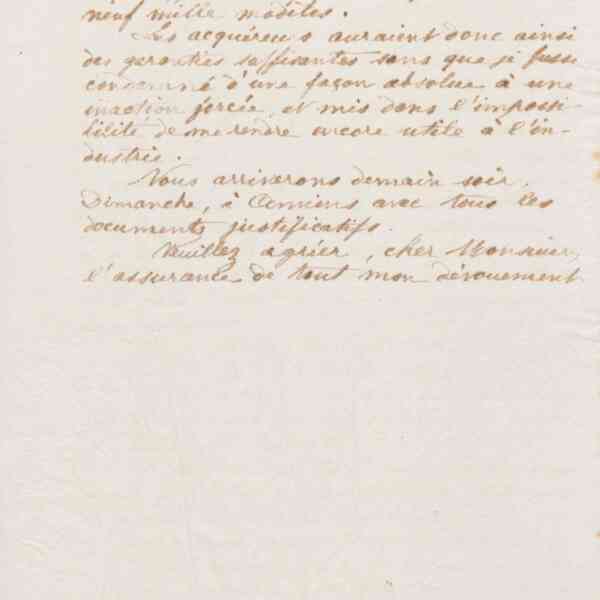 neuf mille modèles.
Les acquéreurs auraient donc ainsi
des garanties suffisantes sans que je fusse
condamné d'une façon absolue à une
inaction forcée, et mis dans l'impossi-
bilité de me rendre encore utile à l'in-
dustrie.
Nous arriverons demain soir,
Dimanche, à avec tous les
documents justificatifs.
Veuillez agréer, cher Monsieur,
l'assurance de tout mon dévouement